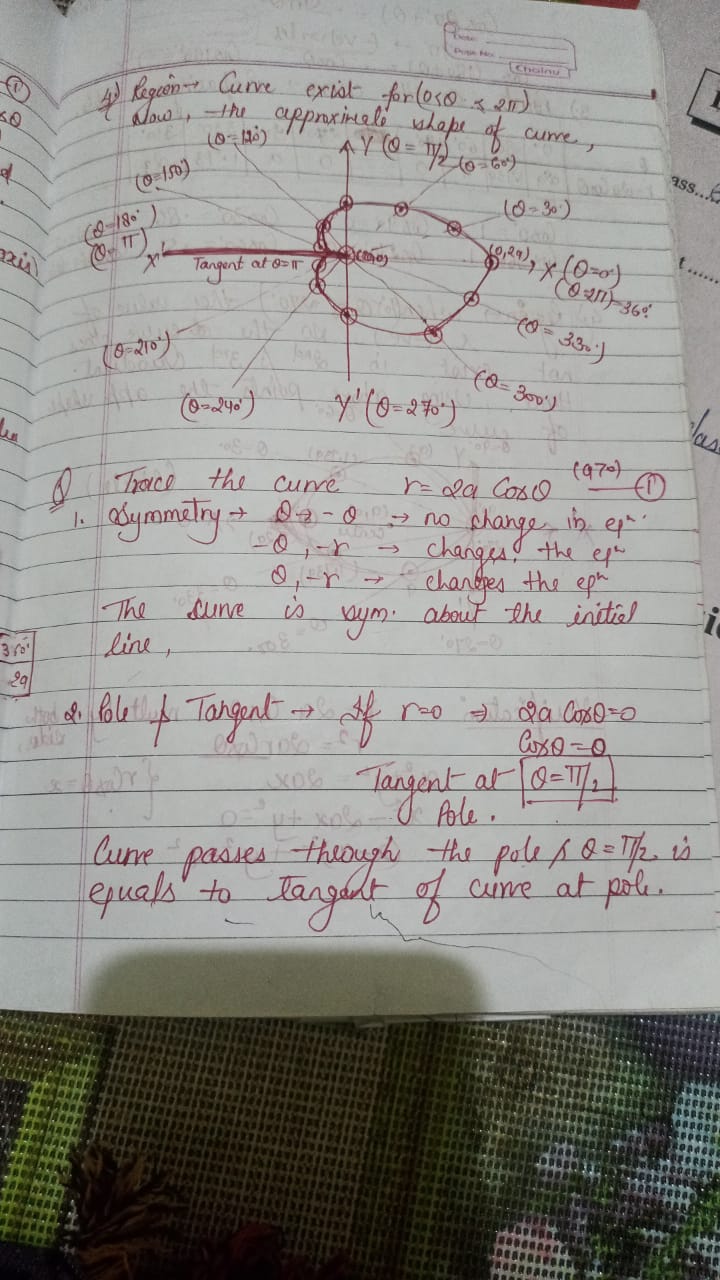 Date
Page No.
4) Region → Curve exist for (0≤θ ≤ 2π)
Now, the approximate shape of curve,
(θ=120°)
Y (θ = π/2)
(θ=60°)
(θ=150°)
(θ=30°)
(θ=180°)
(θ=π)
X'
Tangent at θ=π
(0,2a)
X (θ=0°)
(θ=2π)=360°
(θ = 330°)
(θ=210°)
(θ=300°)
(θ=240°)
Y' (θ=270°)
Q Trace the curve r = 2a Cosθ (a>0) ①
1. Symmetry → θ → -θ → no change in eqn.
-θ, -r → changes the eqn
θ, -r → changes the eqn
The curve is sym. about the initial
line,
2. Pole & Tangent → If r=0 ⇒ 2a Cosθ=0
Cosθ = 0
Tangent at θ=π/2
Pole.
Curve passes through the pole & θ=π/2 is
equals to tangent of curve at pole.
360°
2a
ass...